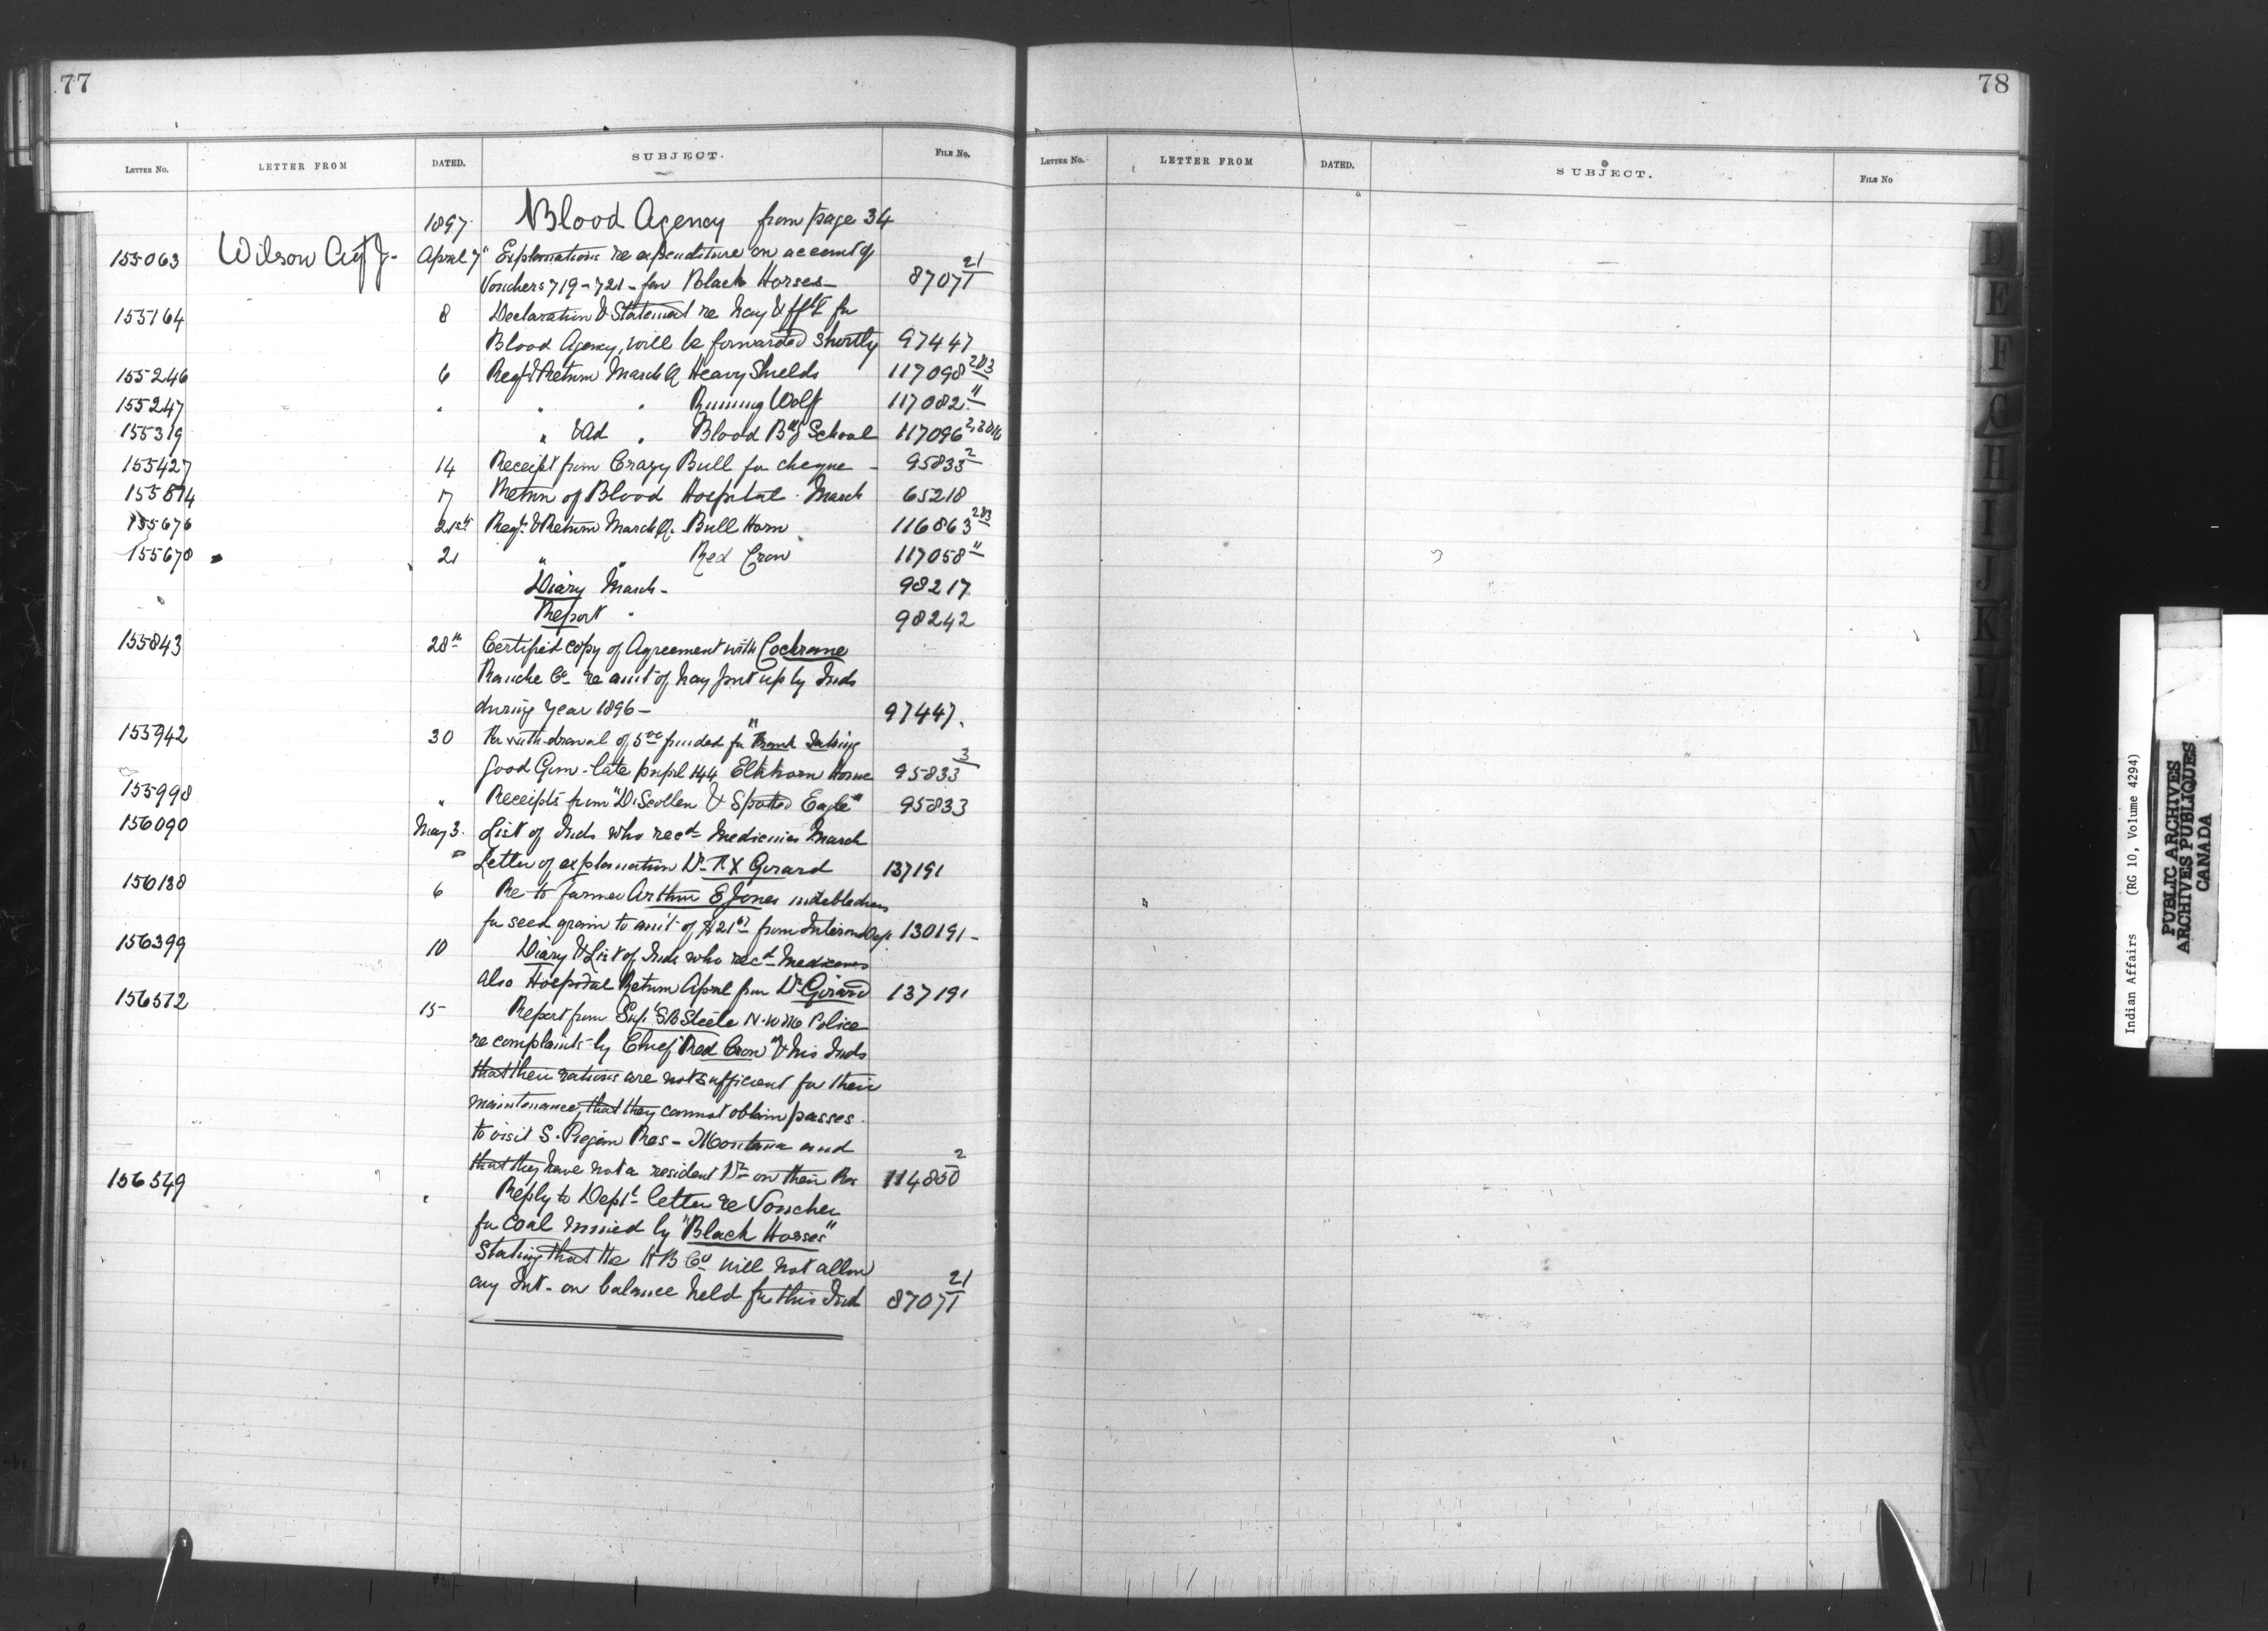 77
LETTER NO. LETTER FROM DATED. SUBJECT. FILE NO.
1897 Blood Agency from page 34
155063 Wilson Agt J. April 7" Explanations re expenditure on account of
Vouchers 719-721 - for Black Horses - 87071 21
155164 8 Declaration & Statement re hay & for
Blood Agency, will be forwarded shortly 97447
155246 6 Reqt & Return March Q Heavy Shields 117098 2&3
155247 " " " Running Wolf 117082 "
155319 " & Ad " Blood Bdg School 117096
155427 14 Receipt from Crazy Bull for cheque - 95833 2
155514 17 Return of Blood Hospital. March 65218
155676 21st Reqt & Return March Q. Bull Horn 116863 2&3
155678 " 21 " " Red Crow 117058 "
Diary March - 98217
Report " 98242
155843 28th Certified copy of Agreement with Cochrane
Ranche Co re amt of hay put up by Inds
during year 1896 - 97447.
155942 30 Re withdrawal of funded for "Frank Taking
Good Gun - late pupil 144 Elkhorn Home 95833 3
155998 " Receipts from "D. Scollen & Spotted Eagle" 95833
156090 May 3. List of Inds who recd Medicines March
" Letter of explanation Dr F X Girard 137191
156138 6 Re to farmer Arthur E Jones indebtedness
for seed grain to amt of $21 from Interior Dep. 130191 -
156399 10 Diary & List of Inds who recd Medicines
also Hospital Return April from Dr Girard 137191
156512 15 Report from Supt S B Steele N.W.M. Police
re complaints by Chief "Red Crow" & his Inds
that their rations are not sufficient for their
maintenance, that they cannot obtain passes
to visit S. Piegan Res - Montana and
that they have not a resident Dr on their Res 114850 2
156549 " Reply to Dept letter re Voucher
for coal mined by "Black Horses"
Stating that the H B Co will not allow
any Int - on balance held for this Ind 87071 21
78
LETTER NO. LETTER FROM DATED. SUBJECT. FILE NO
D
E
F
G
H
I
J
K
L
M
W
X
Y
Indian Affairs (RG 10, Volume 4294)
PUBLIC ARCHIVES
ARCHIVES PUBLIQUES
CANADA